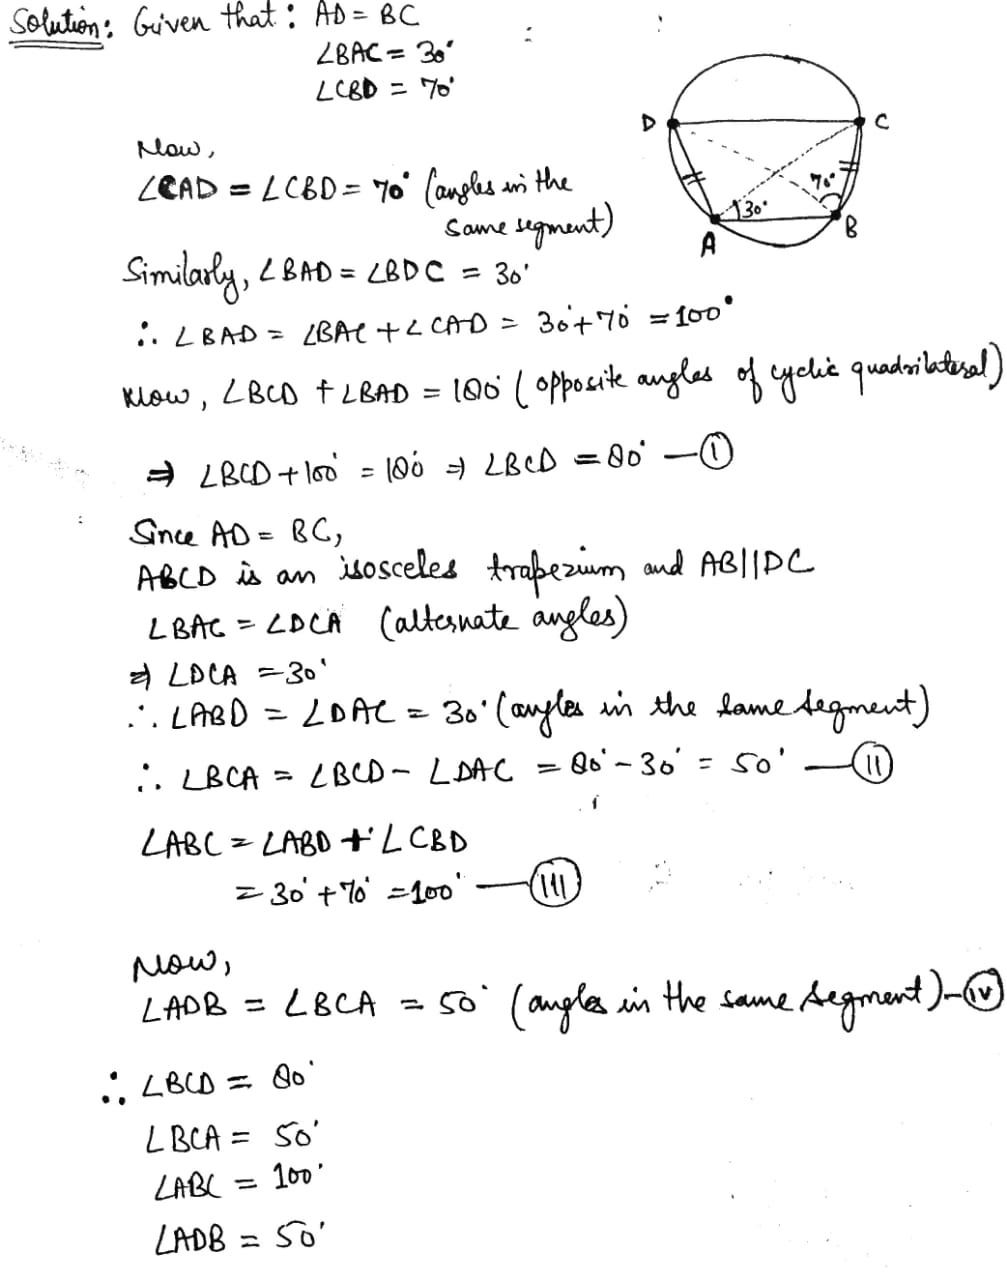 Solution: Given that: AD = BC
∠BAC = 30°
∠CBD = 70°
D C
70°
30°
A B
Now,
∠CAD = ∠CBD = 70° (angles in the
same segment)
Similarly, ∠BAD = ∠BDC = 30°
∴ ∠BAD = ∠BAC + ∠CAD = 30° + 70° = 100°
Now, ∠BCD + ∠BAD = 180° (opposite angles of cyclic quadrilateral)
⇒ ∠BCD + 100° = 180° ⇒ ∠BCD = 80° — (I)
Since AD = BC,
ABCD is an isosceles trapezium and AB||DC
∠BAC = ∠DCA (alternate angles)
⇒ ∠DCA = 30°
∴ ∠ABD = ∠DAC = 30° (angles in the same segment)
∴ ∠BCA = ∠BCD - ∠DAC = 80° - 30° = 50° — (II)
∠ABC = ∠ABD + ∠CBD
= 30° + 70° = 100° — (III)
Now,
∠ADB = ∠BCA = 50° (angles in the same segment) — (IV)
∴ ∠BCD = 80°
∠BCA = 50°
∠ABC = 100°
∠ADB = 50°